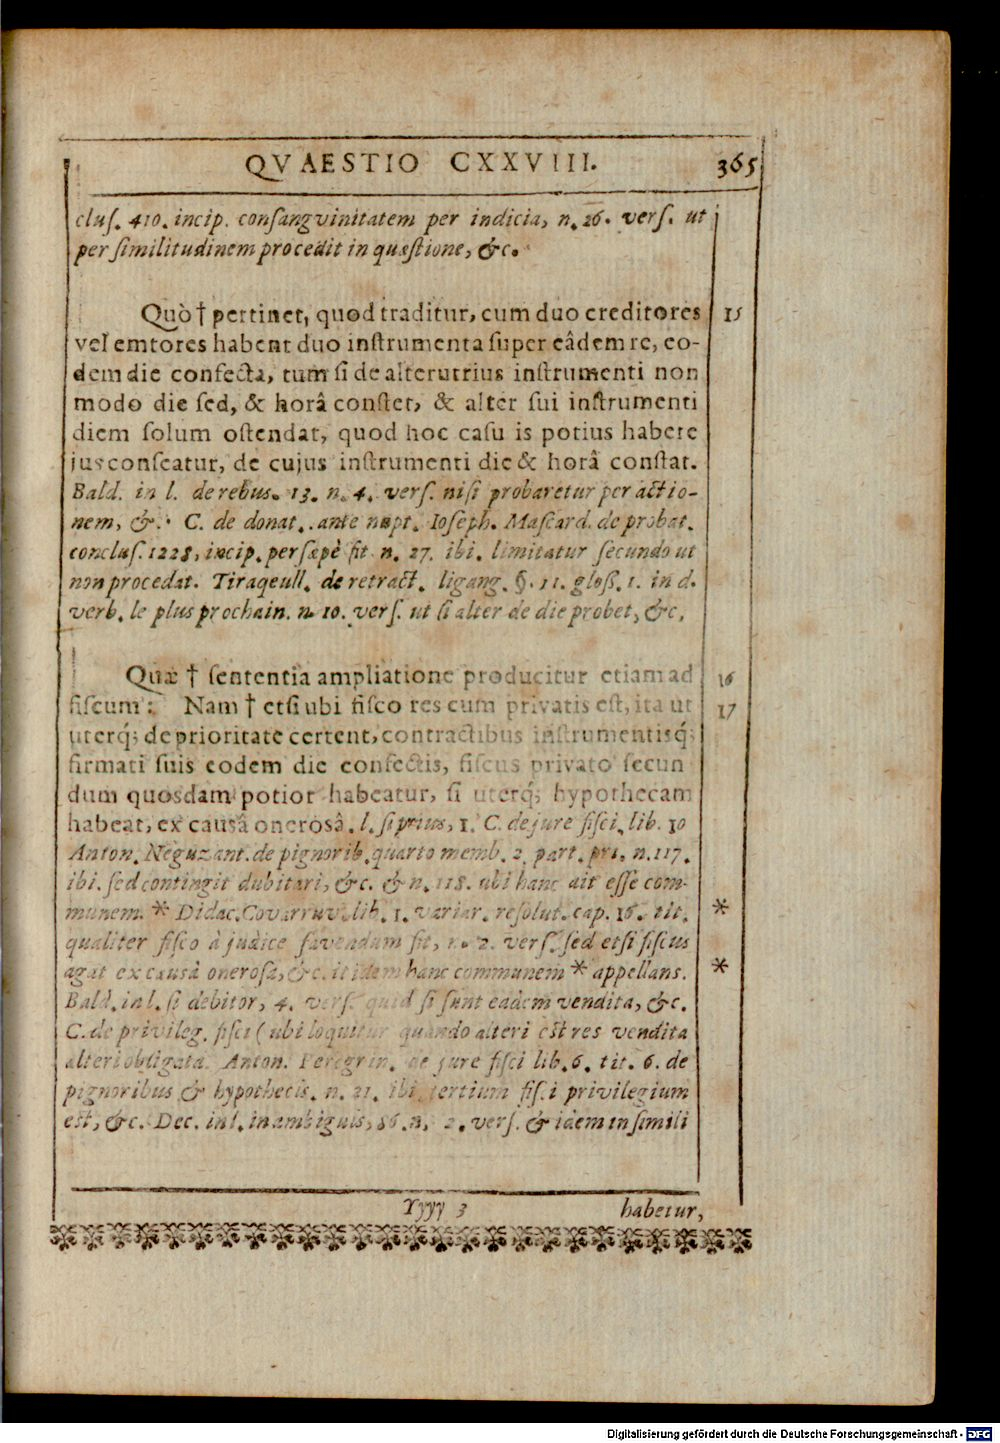 QVAESTIO CXXVIII. 365
cluſ. 410. incip. conſangvinitatem per indicia, n. 26. verſ. ut
per ſimilitudinem procedit in quæſtione, &c.
Quò † pertinet, quod traditur, cum duo creditores 15
vel emtores habent duo inſtrumenta ſuper eâdem re, eo-
dem die confecta, tum ſi de alterutrius inſtrumenti non
modo die ſed, & horâ conſtet, & alter ſui inſtrumenti
diem ſolum oſtendat, quod hoc caſu is potius habere
jus conſeatur, de cujus inſtrumenti die & horâ conſtat.
Bald. in l. de rebus. 13. n. 4. verſ. niſi probaretur per actio-
nem, &. C. de donat. ante nupt. Ioſeph. Maſcard. de probat.
concluſ. 1228, incip. per ſæpè fit n. 27. ibi. limitatur ſecundo ut
non procedat. Tiraqeull. de retract. ligang. §. 11. gloß. 1. in d.
verb. le plus prochain. n. 10. verſ. ut ſi alter de die probet, &c.
Quæ † ſententia ampliatione producitur etiam ad 16
fiſcum: Nam † etſi ubi fiſco res cum privatis eſt, ita ut 17
uterq́; de prioritate certent, contractibus inſtrumentisq́;
firmati ſuis eodem die confectis, fiſcus privato ſecun
dum quosdam potior habeatur, ſi uterq́; hypothecam
habeat, ex causâ onerosâ. l. ſi prius, 1. C. de jure fiſci, lib. 10
Anton. Neguzant. de pignorib. quarto memb. 2. part. pri. n. 117.
ibi. ſed contingit dubitari, &c. & n. 118. ubi hanc ait eſſe com-
munem. * Didac. Covarruv. lib. 1. variar. reſolut. cap. 16. tit. *
qualiter fiſco à judice favendum ſit, n. 2. verſ. ſed etſi fiſcus
agat ex causâ onerosâ, &c. it idem hanc communem * appellans. *
Bald. in l. ſi debitor, 4. verſ. quid ſi ſunt eadem vendita, &c.
C. de privileg. fiſci (ubi loquitur quando alteri eſt res vendita
alteri obligata. Anton. Peregrin. de jure fiſci lib. 6. tit. 6. de
pignoribus & hypothecis. n. 21. ibi tertium fiſci privilegium
eſt, &c. Dec. in l. in ambiguis, 86. n. 2. verſ. & idem in ſimili
Yyyy 3 habetur,
Digitalisierung gefördert durch die Deutsche Forschungsgemeinschaft - DFG